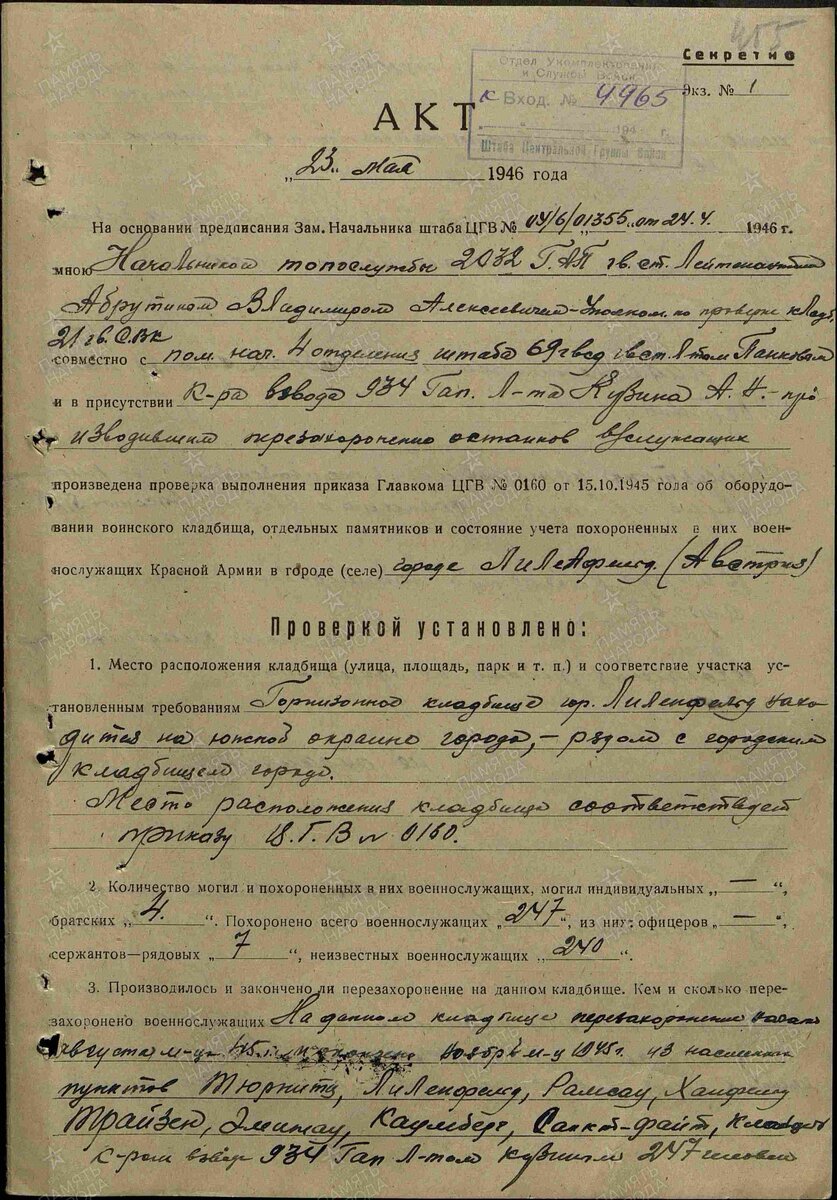 455
Секретно
Отдел Укомплектования
и Службы Войск
к Вход. № 4965
Экз. № 1
194 г.
Штаба Центральной Группы Войск
АКТ
„23“ мая 1946 года
На основании предписания Зам. Начальника штаба ЦГВ № 04/6/01355 от 24.4. 1946 г.
мною Начальником топослужбы 2032 ГАП гв. ст. Лейтенантом
Абрутиком Владимиром Алексеевичем - Уполном. по проверке кладб.
21 гв. С.В.К
совместно с пом. нач. 4 отделения штаба 69 гвсд гв. ст. Л-том Панковым
и в присутствии К-ра взвода 934 Гап. Л-та Кузина А. Н. - про
изводившим перезахоронение останков в/служащих
произведена проверка выполнения приказа Главкома ЦГВ № 0160 от 15.10.1945 года об оборудо-
вании воинского кладбища, отдельных памятников и состояние учета похороненных в них воен-
нослужащих Красной Армии в городе (селе) городе Лиленфельд (Австрия)
Проверкой установлено:
1. Место расположения кладбища (улица, площадь, парк и т. п.) и соответствие участка ус-
тановленным требованиям Гарнизонное кладбище гор. Лиленфельд нахо
дится на южной окраине города, - рядом с городским
кладбищем города.
Место расположения кладбища соответствует
приказу Ц.Г.В № 0160.
2. Количество могил и похороненных в них военнослужащих, могил индивидуальных „—“,
братских „4.“. Похоронено всего военнослужащих „247“, из них: офицеров „—“,
сержантов—рядовых „7“, неизвестных военнослужащих „240“.
3. Производилось и закончено ли перезахоронение на данном кладбище. Кем и сколько пере-
захоронено военнослужащих На данном кладбище перезахоронение начато
августа м-ца 45 г. ноябрь м-ц 1945 г. из населенн
пунктов Тюрнитц, Лиленфельд, Рамсау, Хаинфельд
Трайзен, Каумберг, Санкт-файт,
К-ром взвода 934 Гап Л-том Кузиным 247 человек